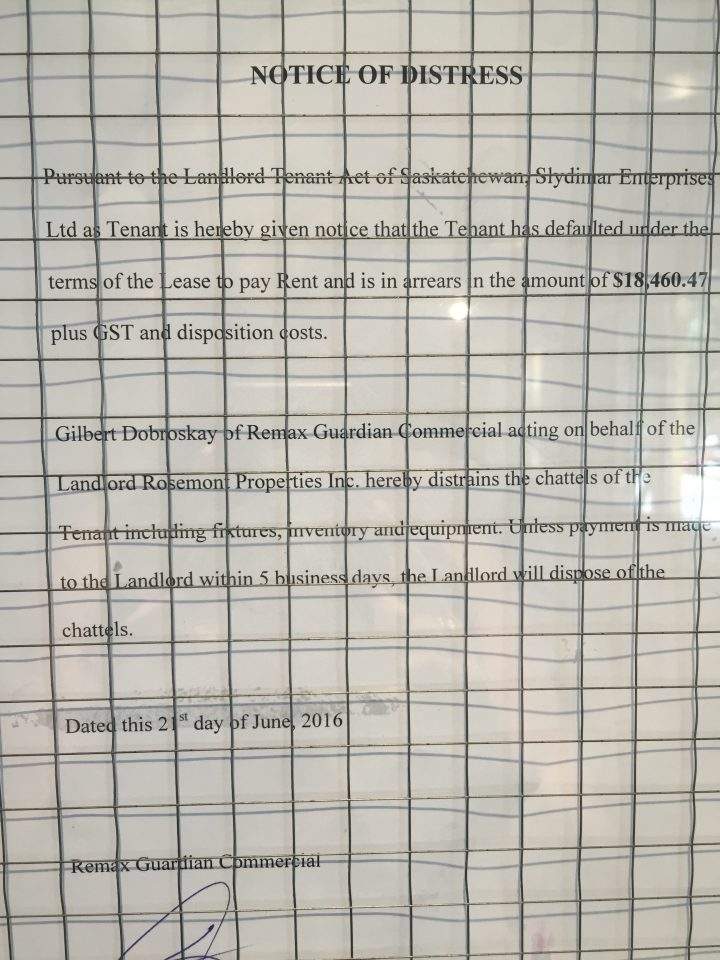 NOTICE OF DISTRESS
Pursuant to the Landlord Tenant Act of Saskatchewan, Slydimar Enterprises
Ltd as Tenant is hereby given notice that the Tenant has defaulted under the
terms of the Lease to pay Rent and is in arrears in the amount of $18,460.47
plus GST and disposition costs.
Gilbert Dobroskay of Remax Guardian Commercial acting on behalf of the
Landlord Rosemont Properties Inc. hereby distrains the chattels of the
Tenant including fixtures, inventory and equipment. Unless payment is made
to the Landlord within 5 business days, the Landlord will dispose of the
chattels.
Dated this 21st day of June, 2016
Remax Guardian Commercial